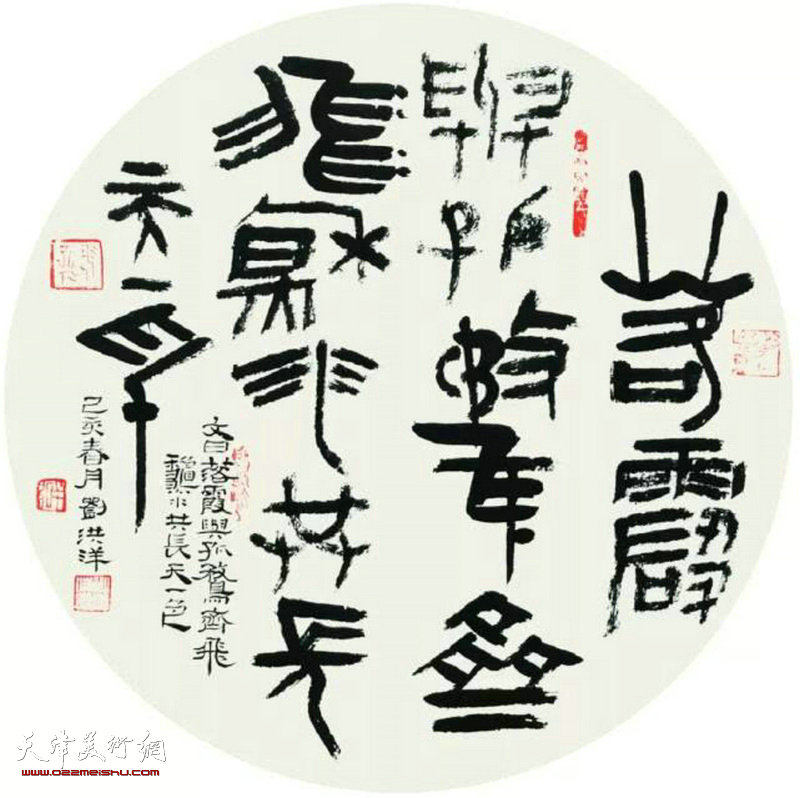 落霞
與孤鶩齊
飛秌水共長
天一色
文曰落霞與孤鶩齊飛
秌水共長天一色
己亥春月劉洪洋
天津美術網
www.022meishu.com